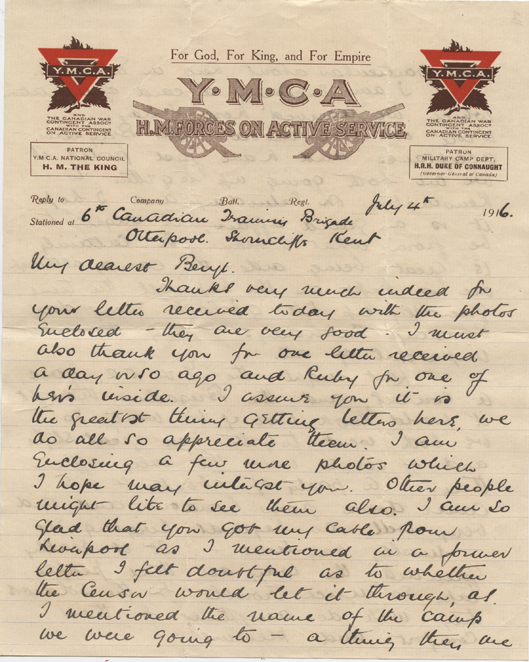 For God, For King, and For Empire
Y.M.C.A.
Y.M.C.A.
Y·M·C·A
H.M. FORCES ON ACTIVE SERVICE
AND
THE CANADIAN WAR
CONTINGENT ASSOCN
WITH THE
CANADIAN CONTINGENT
ON ACTIVE SERVICE
AND
THE CANADIAN WAR
CONTINGENT ASSOCN
WITH THE
CANADIAN CONTINGENT
ON ACTIVE SERVICE
PATRON
Y.M.C.A. NATIONAL COUNCIL
H. M. THE KING
PATRON
MILITARY CAMP DEPT.
H.R.H. DUKE OF CONNAUGHT
(Governor General of Canada)
Reply to Company Batt. Regt. July 4th 1916.
Stationed at 6th Canadian Training Brigade
Otterpool. Shorncliffe Kent
My dearest Beryl.
Thanks very much indeed for
your letter received today with the photos
enclosed - they are very good. I must
also thank you for one letter received
a day or so ago and Ruby for one of
hers inside. I assure you it is
the greatest thing getting letters here, we
do all so appreciate them. I am
enclosing a few more photos which
I hope may interest you. Other people
might like to see them also. I am so
glad that you got my cable from
Liverpool as I mentioned in a former
letter I felt doubtful as to whether
the Censor would let it through, as
I mentioned the name of the camp
we were going to - a thing they are